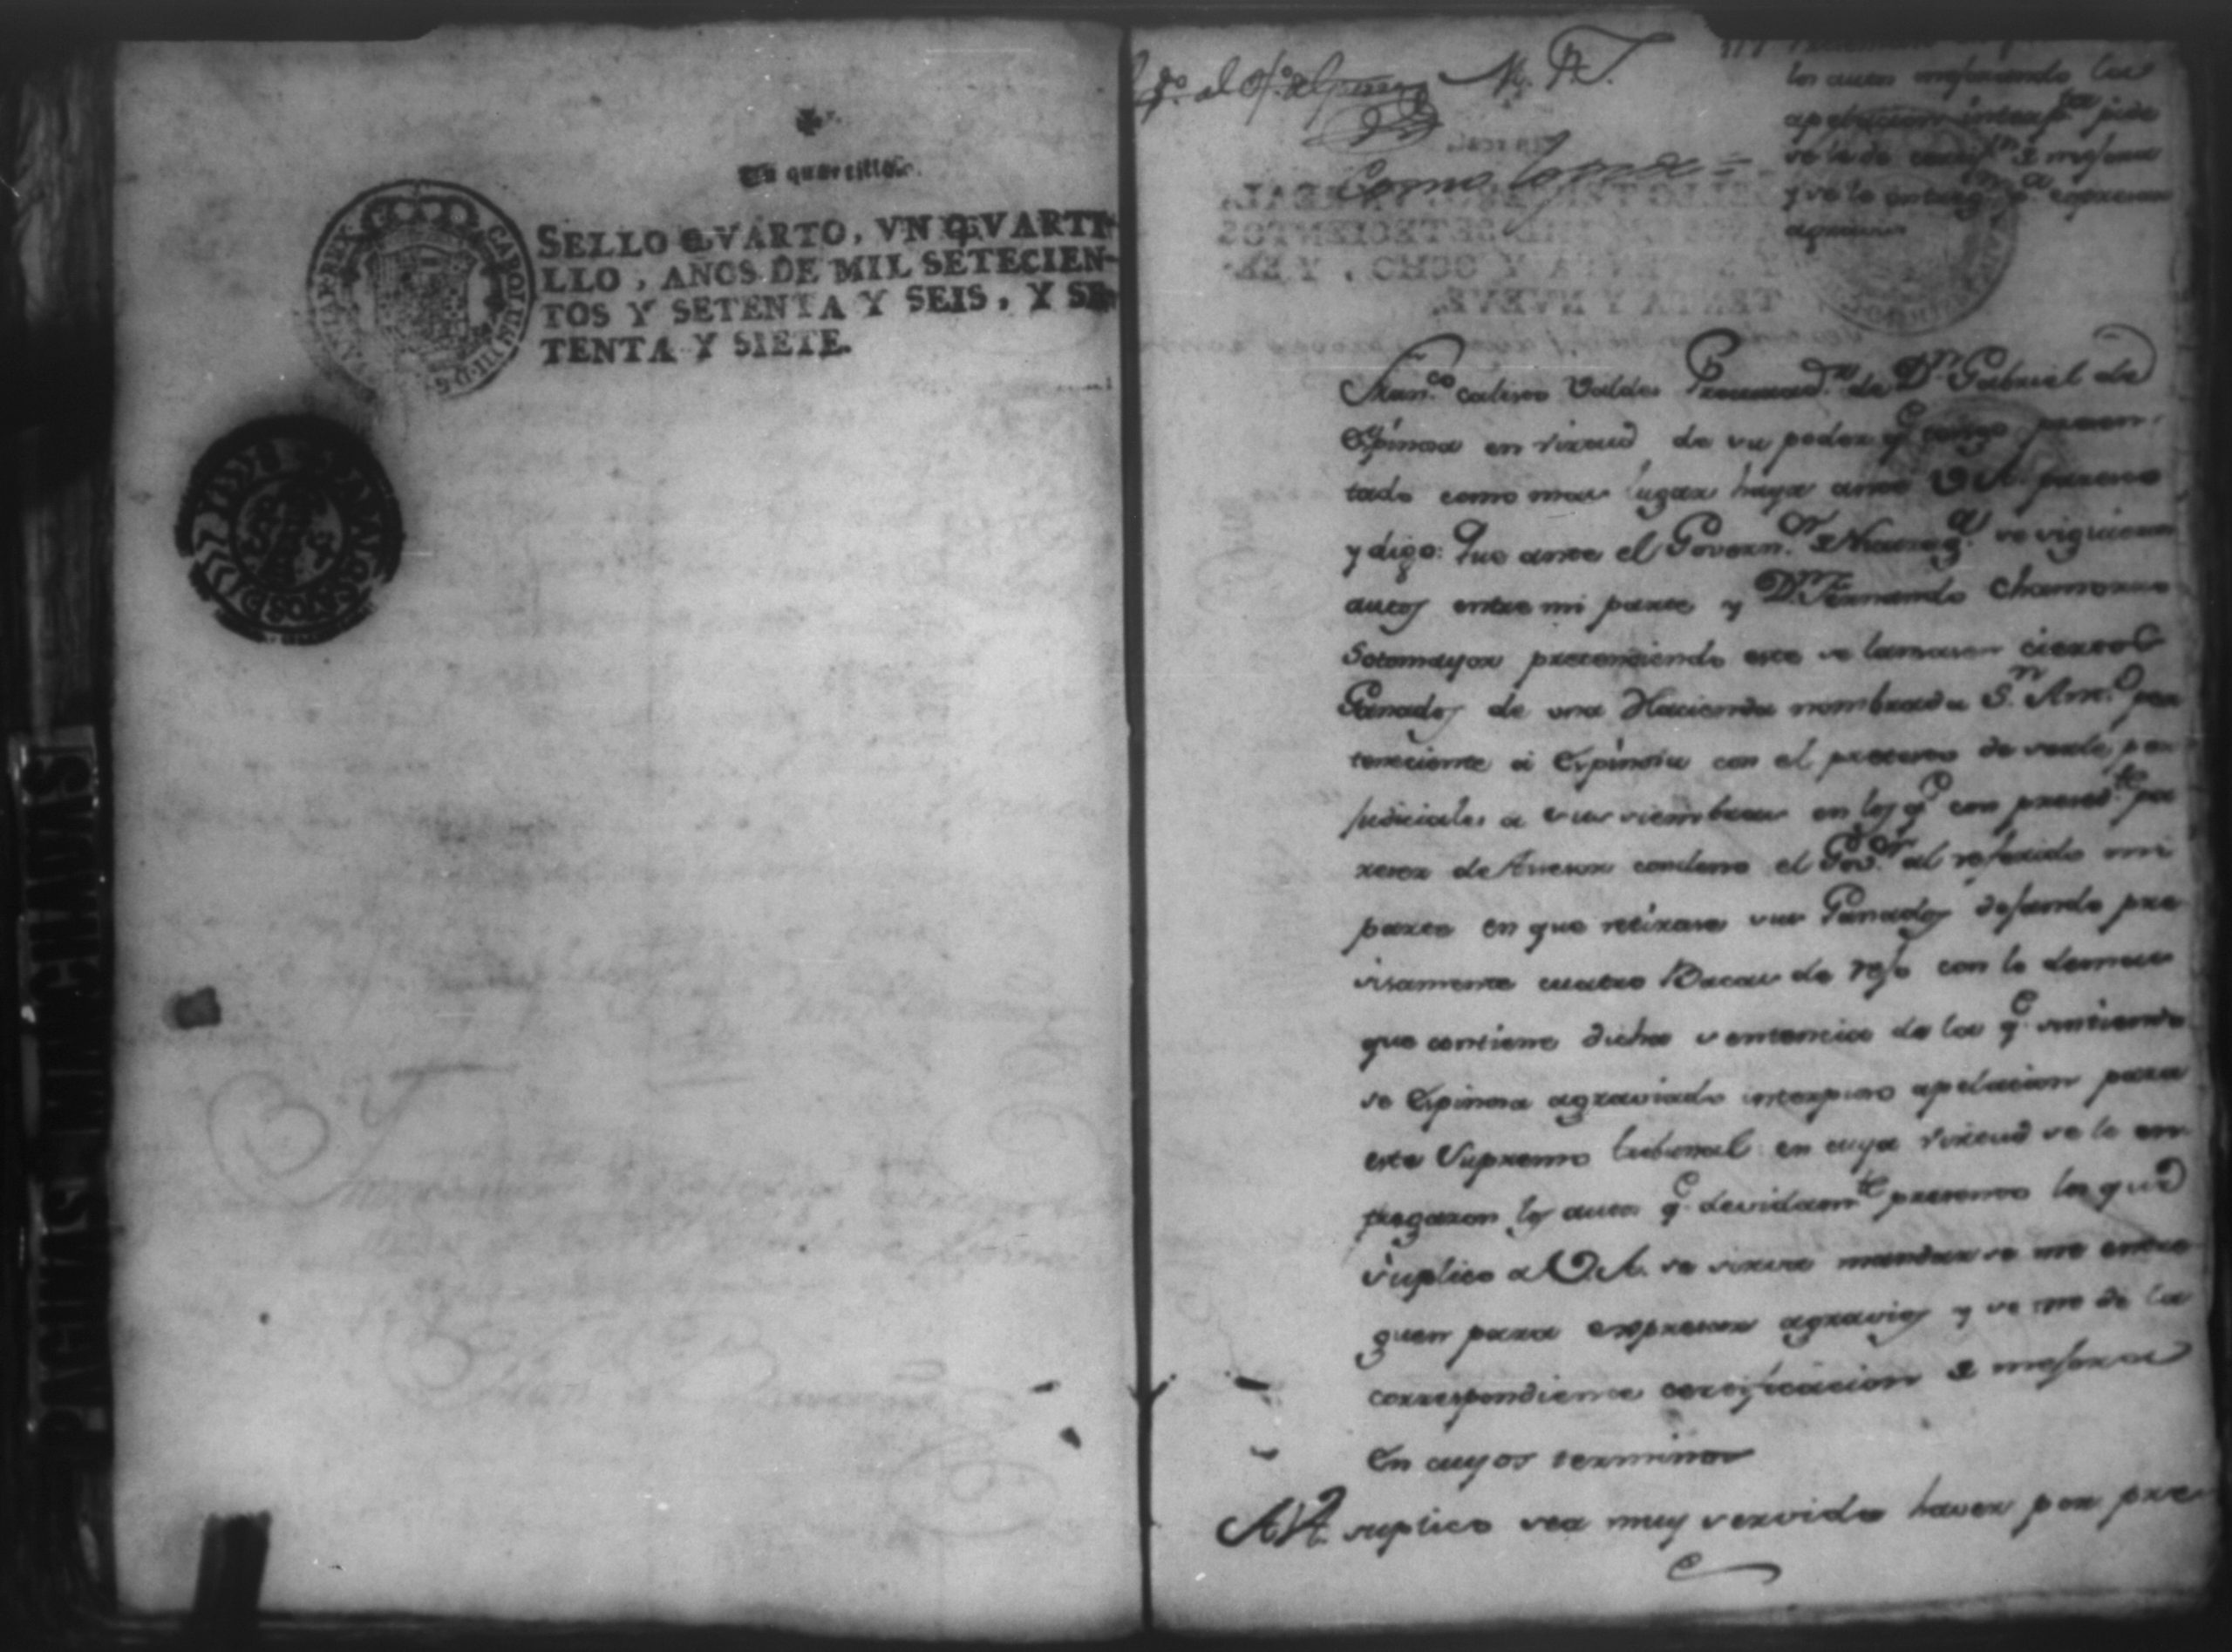 Un quartillo.
SELLO QVARTO, VN QVARTI-
LLO, AÑOS DE MIL SETECIEN-
TOS Y SETENTA Y SEIS, Y SE-
TENTA Y SIETE.
CAROLUS III D G
REX
PAGINAS MANCHADAS
M. P. S.
Como
los autos mejorando la
apelacion interp.ta pide
se le de certif.n de mejora
y se le entreg.n p.a expresar
agravios
Fran.co calisto Valdes Procurad.r de D.n Gabriel de
Espinosa en virtud de su poder q.e tengo presen-
tado como mas lugar haya ante V.A. paresco
y digo: Que ante el Govern.or de Nicarag.a se siguieron
autos entre mi parte y D.n Fernando Chamorro
Sotomayor pretendiendo este se lansasen ciertos
Ganados de una Hacienda nombrada S.n Ant.o per
teneciente a Espinosa con el pretexto de serle per
judiciales a sus siembras en los q.e con preced.te pa
recer de Asesor condeno el Gov.or al referido mi
parte en que retirase sus Ganados dejando pre
cisamente cuatro Bacas de rejo con lo demas
que contiene dicha sentencia de la q.e sintiendo
se Espinosa agraviado interpuso apelacion para
este Supremo tribunal en cuya virtud se le en
tregaron los autos q.e devidam.te presento los que
suplico a V.A. se sirva mandar se me entre
guen para expresar agravios y se me de la
correspondiente certificacion de mejora
En cuyos terminos
A V.A. suplico sea muy servido haver por pre